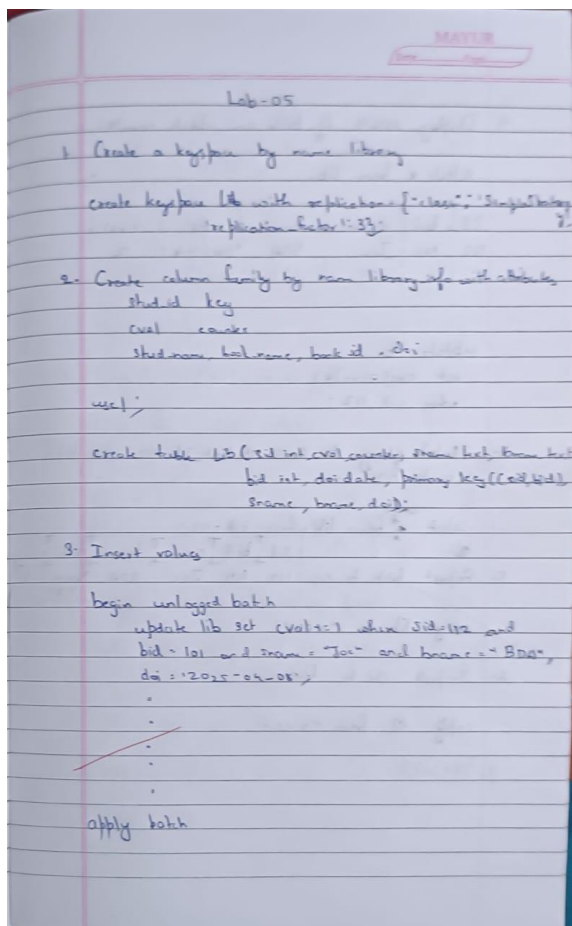 MAYUR
Lab-05
1. Create a keyspace by name library
create keyspace Lib with replication = {"class":
'replication_factor': 3};
2. Create column family by name library info with attributes
stud_id key
cval counter
stud_name, book_name, book id, doi
create table Lib (sid int, cval counter, sname text, bname text
bid int, doi date, primary key((sid, bid),
sname, bname, doi));
3. Insert values
begin unlogged batch
update lib set cval += 1 where sid=112 and
bid = 101 and sname = "Joe" and bname = "BDA",
doi = '2025-04-08';
.
.
.
.
.
apply batch